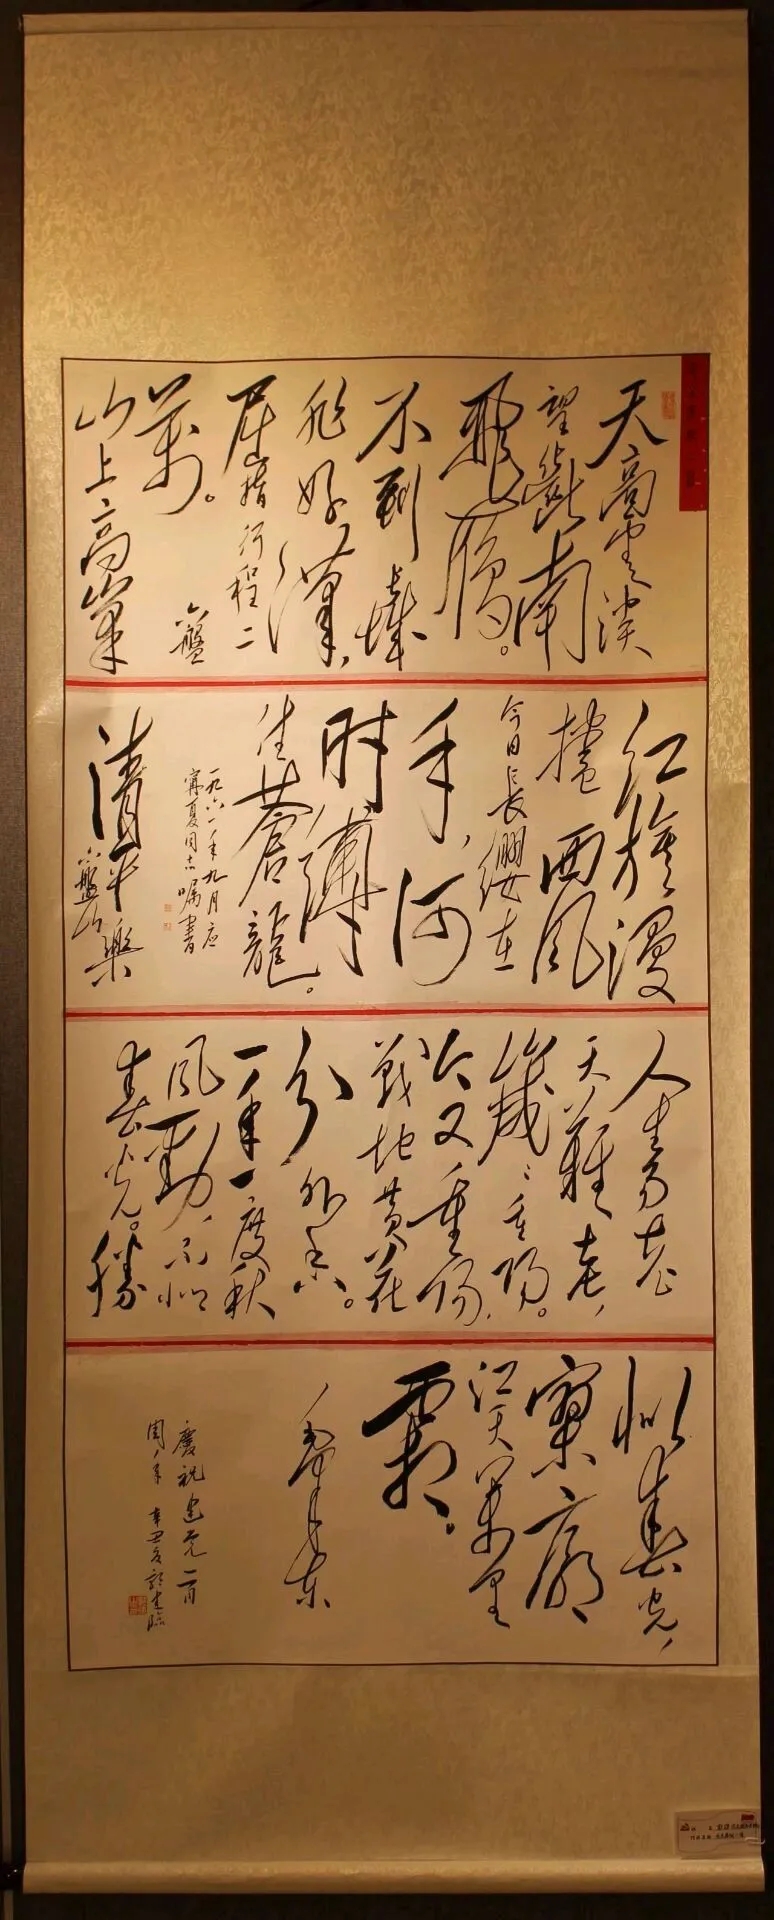 天高云淡
望斷南
飛雁。
不到城
非好漢,
屈指行程二
萬。六盤
山上高峯
红旗漫
捲西風
今日長纓在
手,何
时縛
住蒼龍。
一九六一年九月应
寧夏同志嘱書
清平樂
六盤山
人生易老
天難老,
歲〻重陽。
今又重陽,
戰地黄花
分外香。
一年一度秋
風勁,不似
春光。勝
似春光,
寥廓
江天萬里
霜。
毛泽东
慶祝建党一百
周年 辛丑